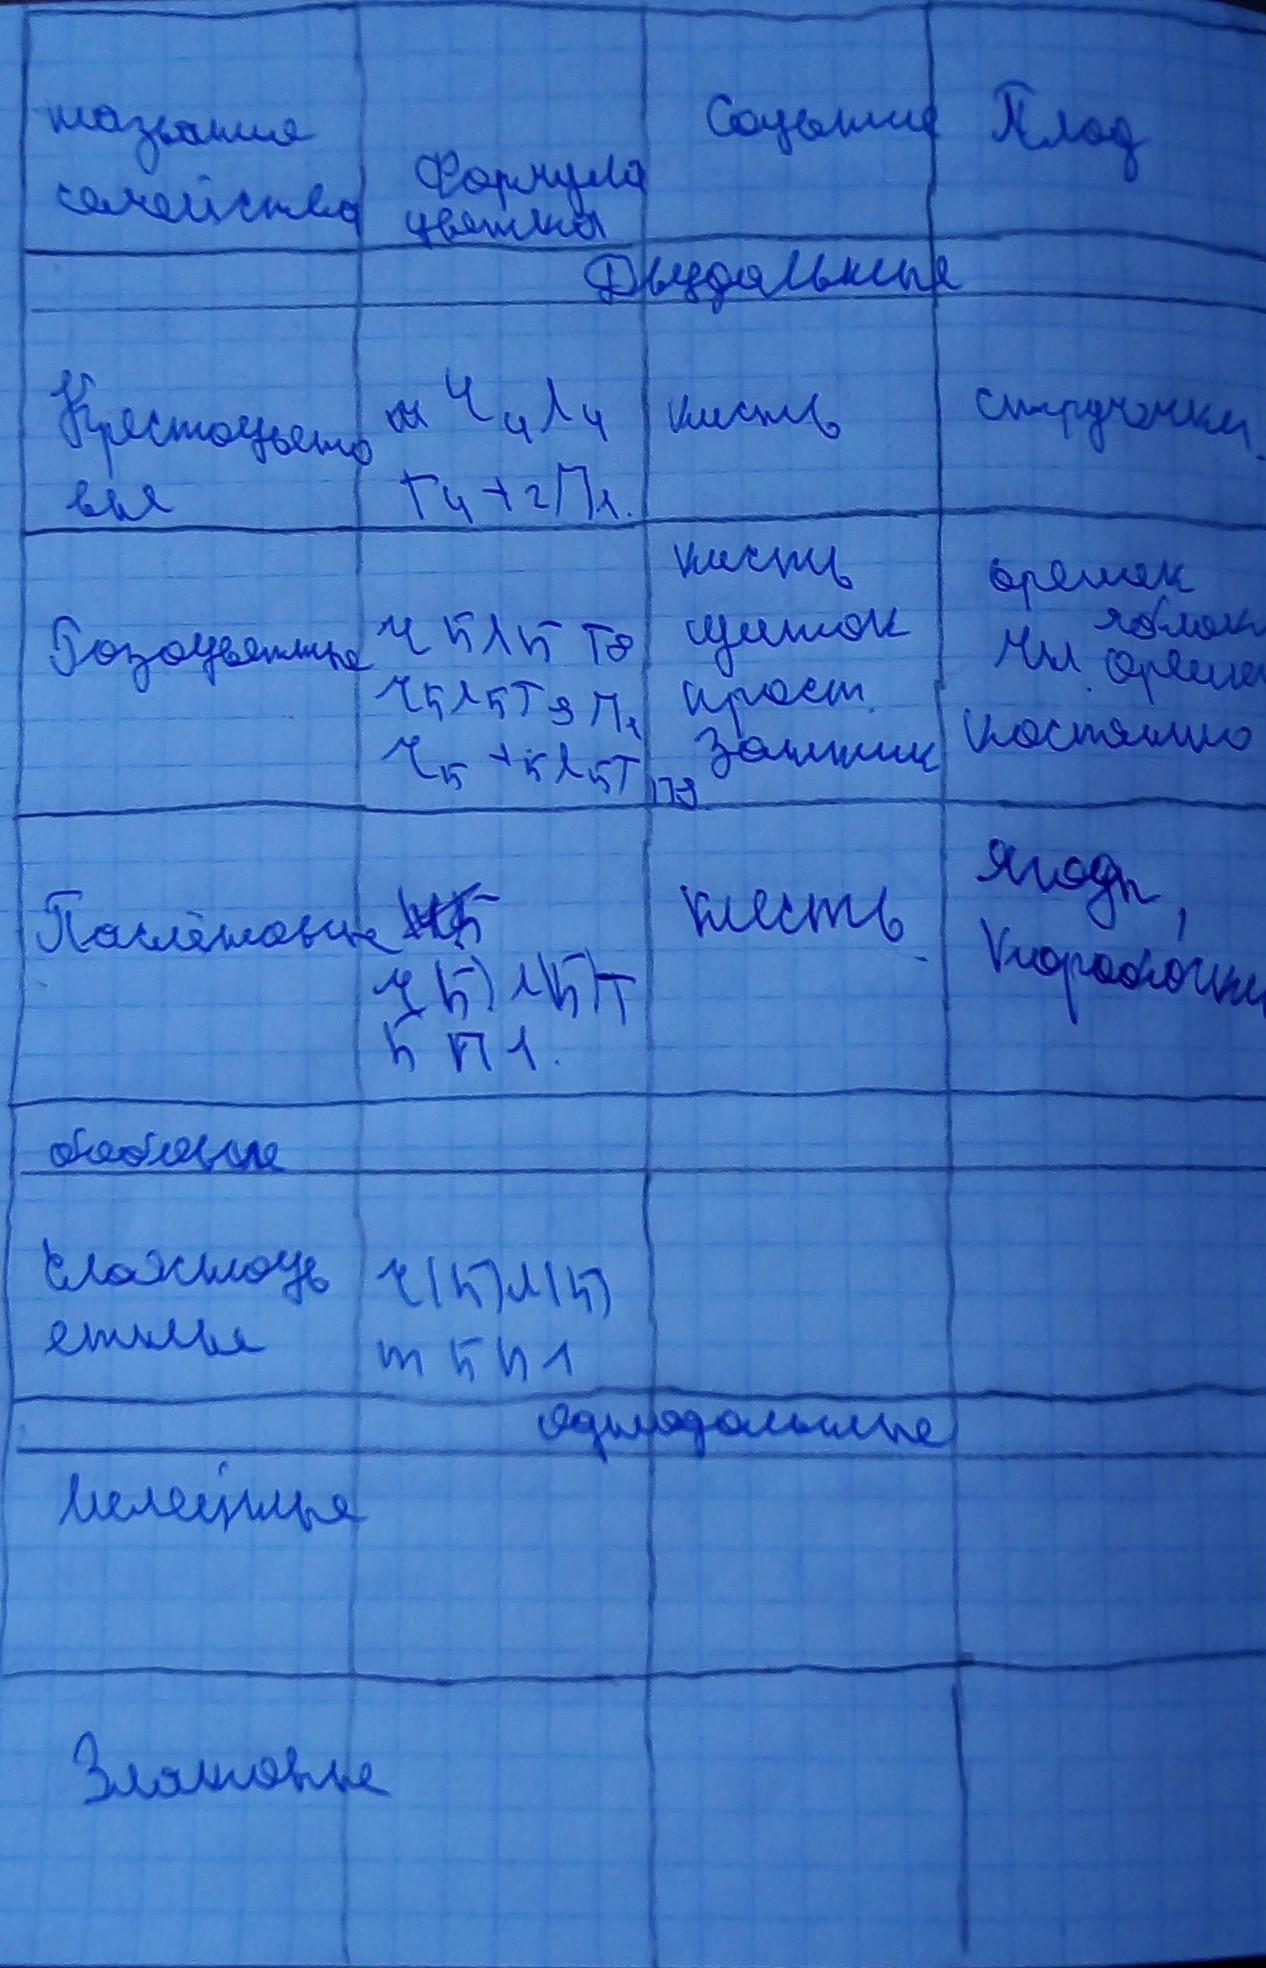 название
семейства
Формула
цветка
Соцветие
Плод
Двудольные
Крестоцвето
вые
Ч4Л4
Т4+2П1.
кисть
стручочки
Розоцветные
Ч5Л5 Т∞
Ч5Л5Т∞П1
Ч5+5Л5Т
П∞
кисть
щиток
прост.
Зонтик
орешек
яблок
Мн. ореше
костянко
Паслёновые
Ч(5)Л(5)Т
5 П1.
кисть
Ягоды,
коробочки
бобовые
Сложноцв
етные
Ч(5)Л(5)
т 5 П 1
Однодольные
Лилейные
Злаковые